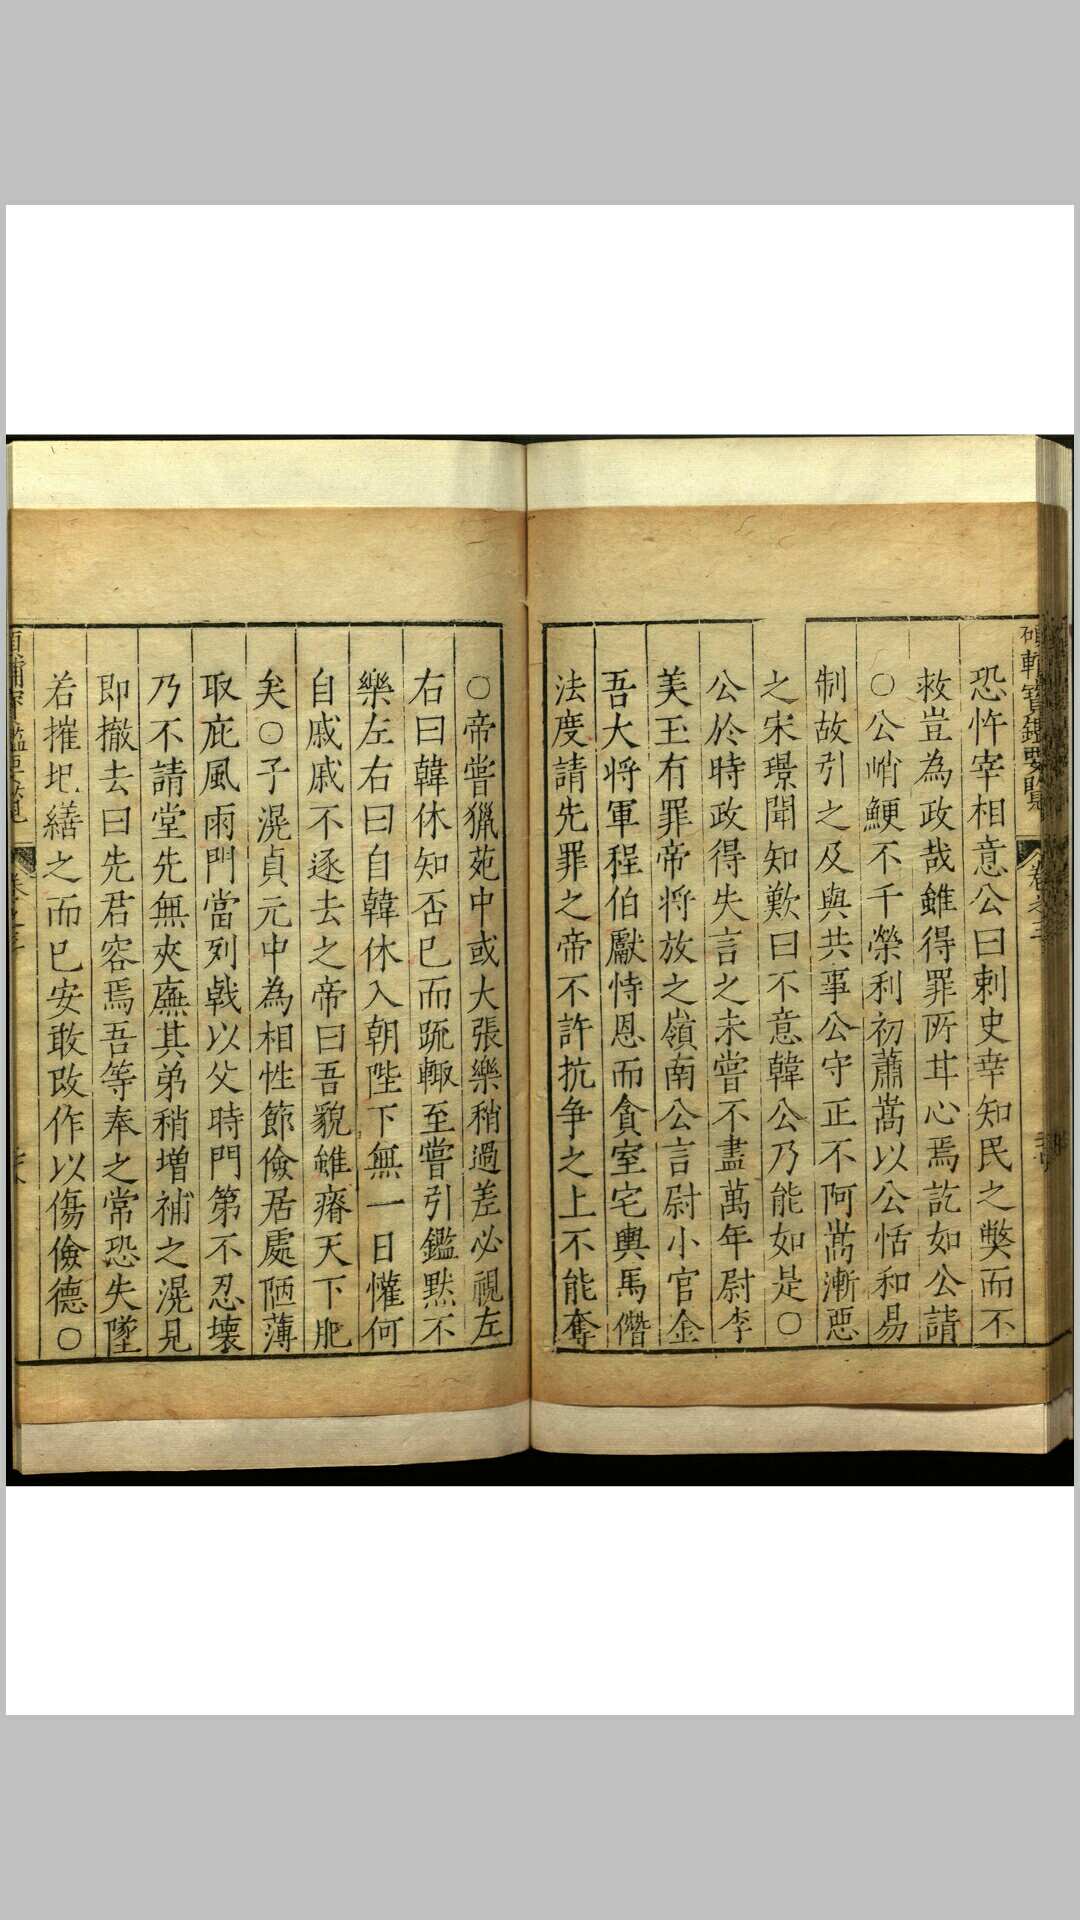 恐忤宰相意公曰刺史幸知民之獘而不
救豈為政哉雖得罪所甘心焉訖如公請
○公峭鯁不干榮利初蕭嵩以公恬和易
制故引之及與共事公守正不阿嵩漸惡
之宋璟聞知歎曰不意韓公乃能如是○
公於時政得失言之未嘗不盡萬年尉李
美玉有罪帝將放之嶺南公言尉小官金
吾大將軍程伯獻恃恩而貪室宅輿馬僭
法度請先罪之帝不許抗争之上不能奪
○帝嘗獵苑中或大張樂稍過差必視左
右曰韓休知否已而䟽輙至嘗引鑑默不
樂左右曰自韓休入朝陛下無一日懽何
自戚戚不逐去之帝曰吾貌雖瘠天下肥
矣○子滉貞元中為相性節儉居處陋薄
取庇風雨門當列戟以父時門第不忍壞
乃不請堂先無夾廡其弟稍增補之滉見
即撤去曰先君容焉吾等奉之常恐失墜
若摧圯繕之而已安敢改作以傷儉德○